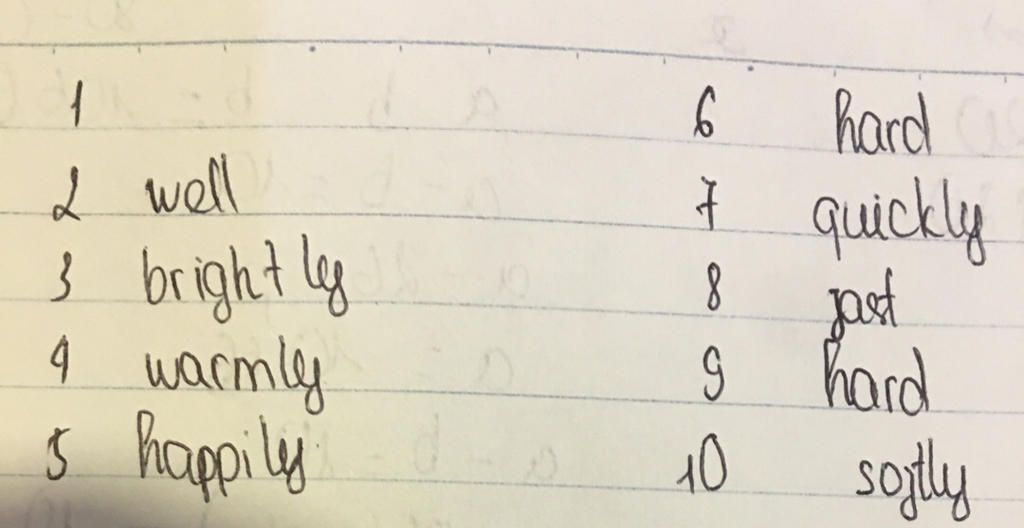 1
2 well
3 brightly
4 warmly
5 happily
6 hard
7 quickly
8 fast
9 hard
10 softly